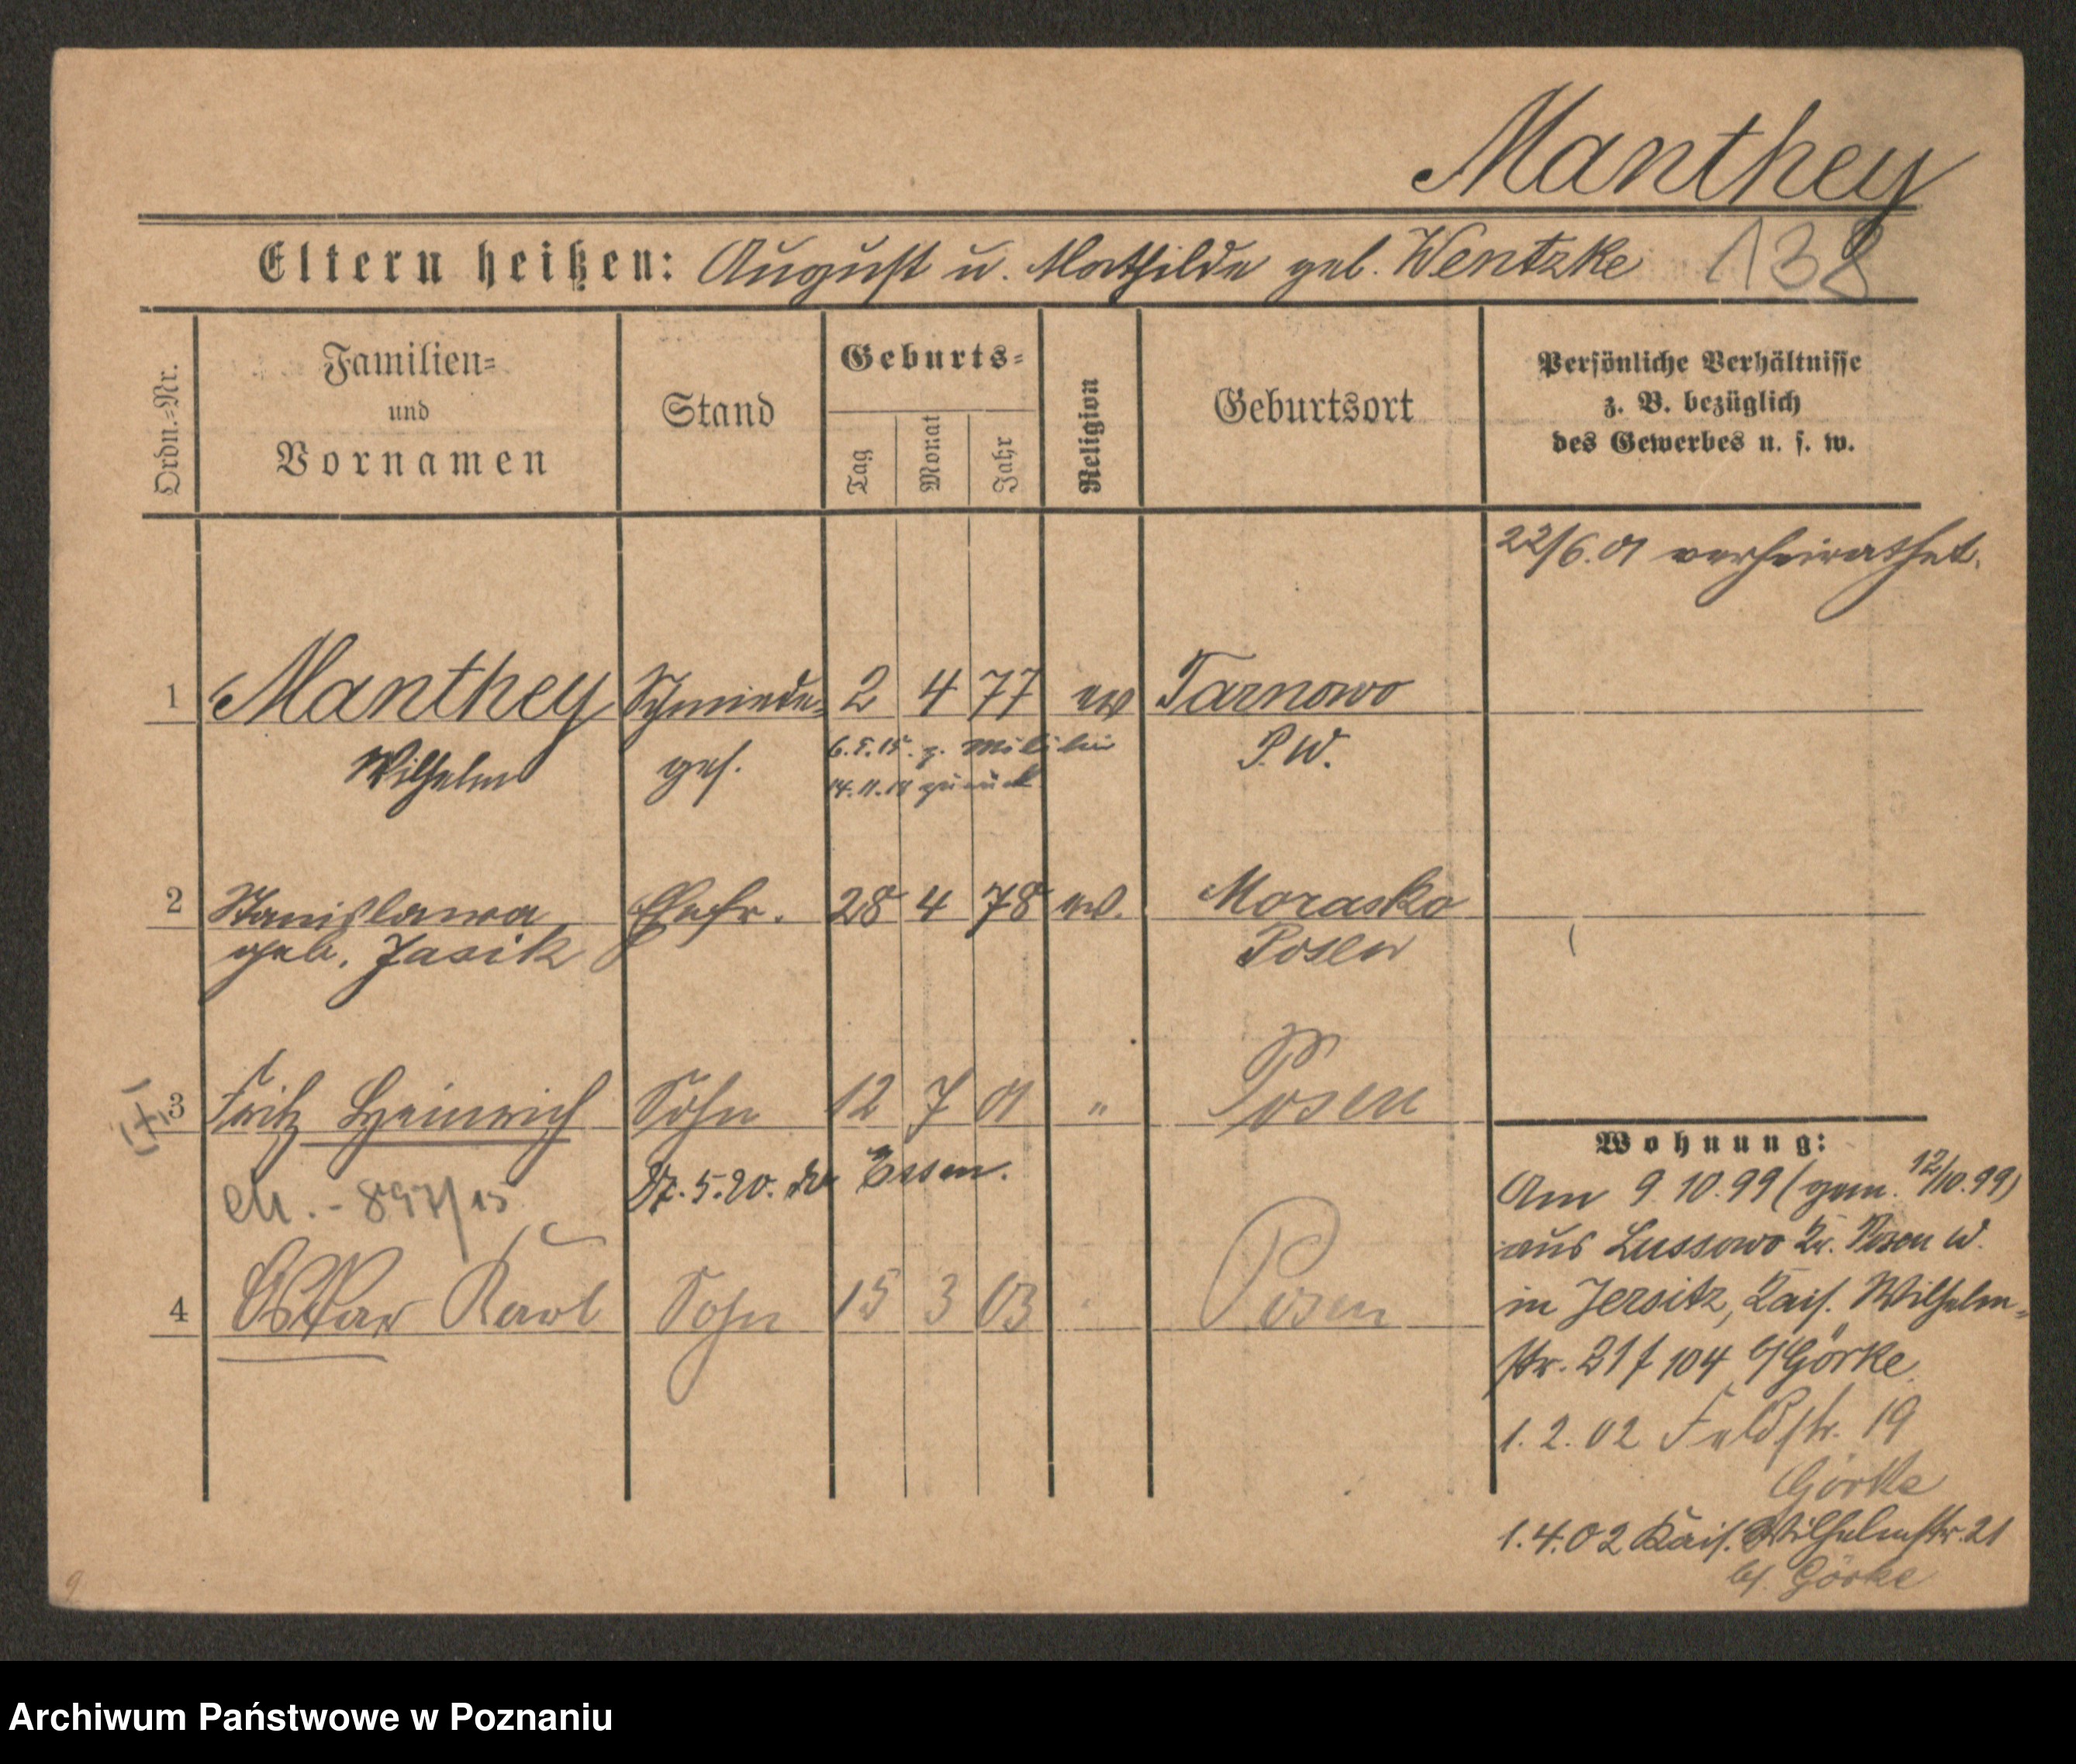 Manthey
Eltern heißen: August u. Mathilde geb. Wentzke 138
Ordn.=Nr. Familien= und Vornamen Stand Geburts= Tag Monat Jahr Religion Geburtsort Persönliche Verhältnisse z. B. bezüglich des Gewerbes u. s. w.
22/6.01 verheirathet.
1 Manthey Schmiede= 2 4 77 ev Tarnowo
Wilhelm ges. 6.5.15. z. Militär P. W.
14.11.18 zurück
2 Stanislawa Ehefr. 28 4 78 ev. Morasko
geb. Jasik Posen
3 Fritz Heinrich Sohn 12 7 01 " Posen
27.5.20. Essen.
897/15
4 Oskar Karl Sohn 15 3 03 " Posen
Wohnung:
Am 9.10.99 (gem. 12/10.99)
aus Lussowo Kr. Posen W.
in Jersitz, Kais. Wilhelm=
str. 21 104 b/Görke.
1.2.02 Feldstr. 19
Görke
1.4.02 Kais. Wilhelmstr. 21
b/. Görke
Archiwum Państwowe w Poznaniu